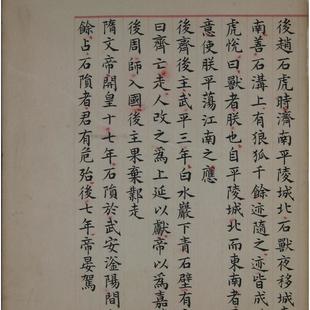 後趙石虎時濟南平陵城北石獸夜移城
南善石溝上有狼狐千餘迹隨之迹皆成
虎悅曰獸者朕也自平陵城北而東南者
意使朕平蕩江南之應
後齋後主武平三年白水巖下青石壁有
曰齊亡走人改之為上延以獻帝以為嘉
後周師入國後主果棄鄴走
隋文帝開皇十七年石隕於武安滏陽間
餘占石隕者君有危殆後七年帝晏駕